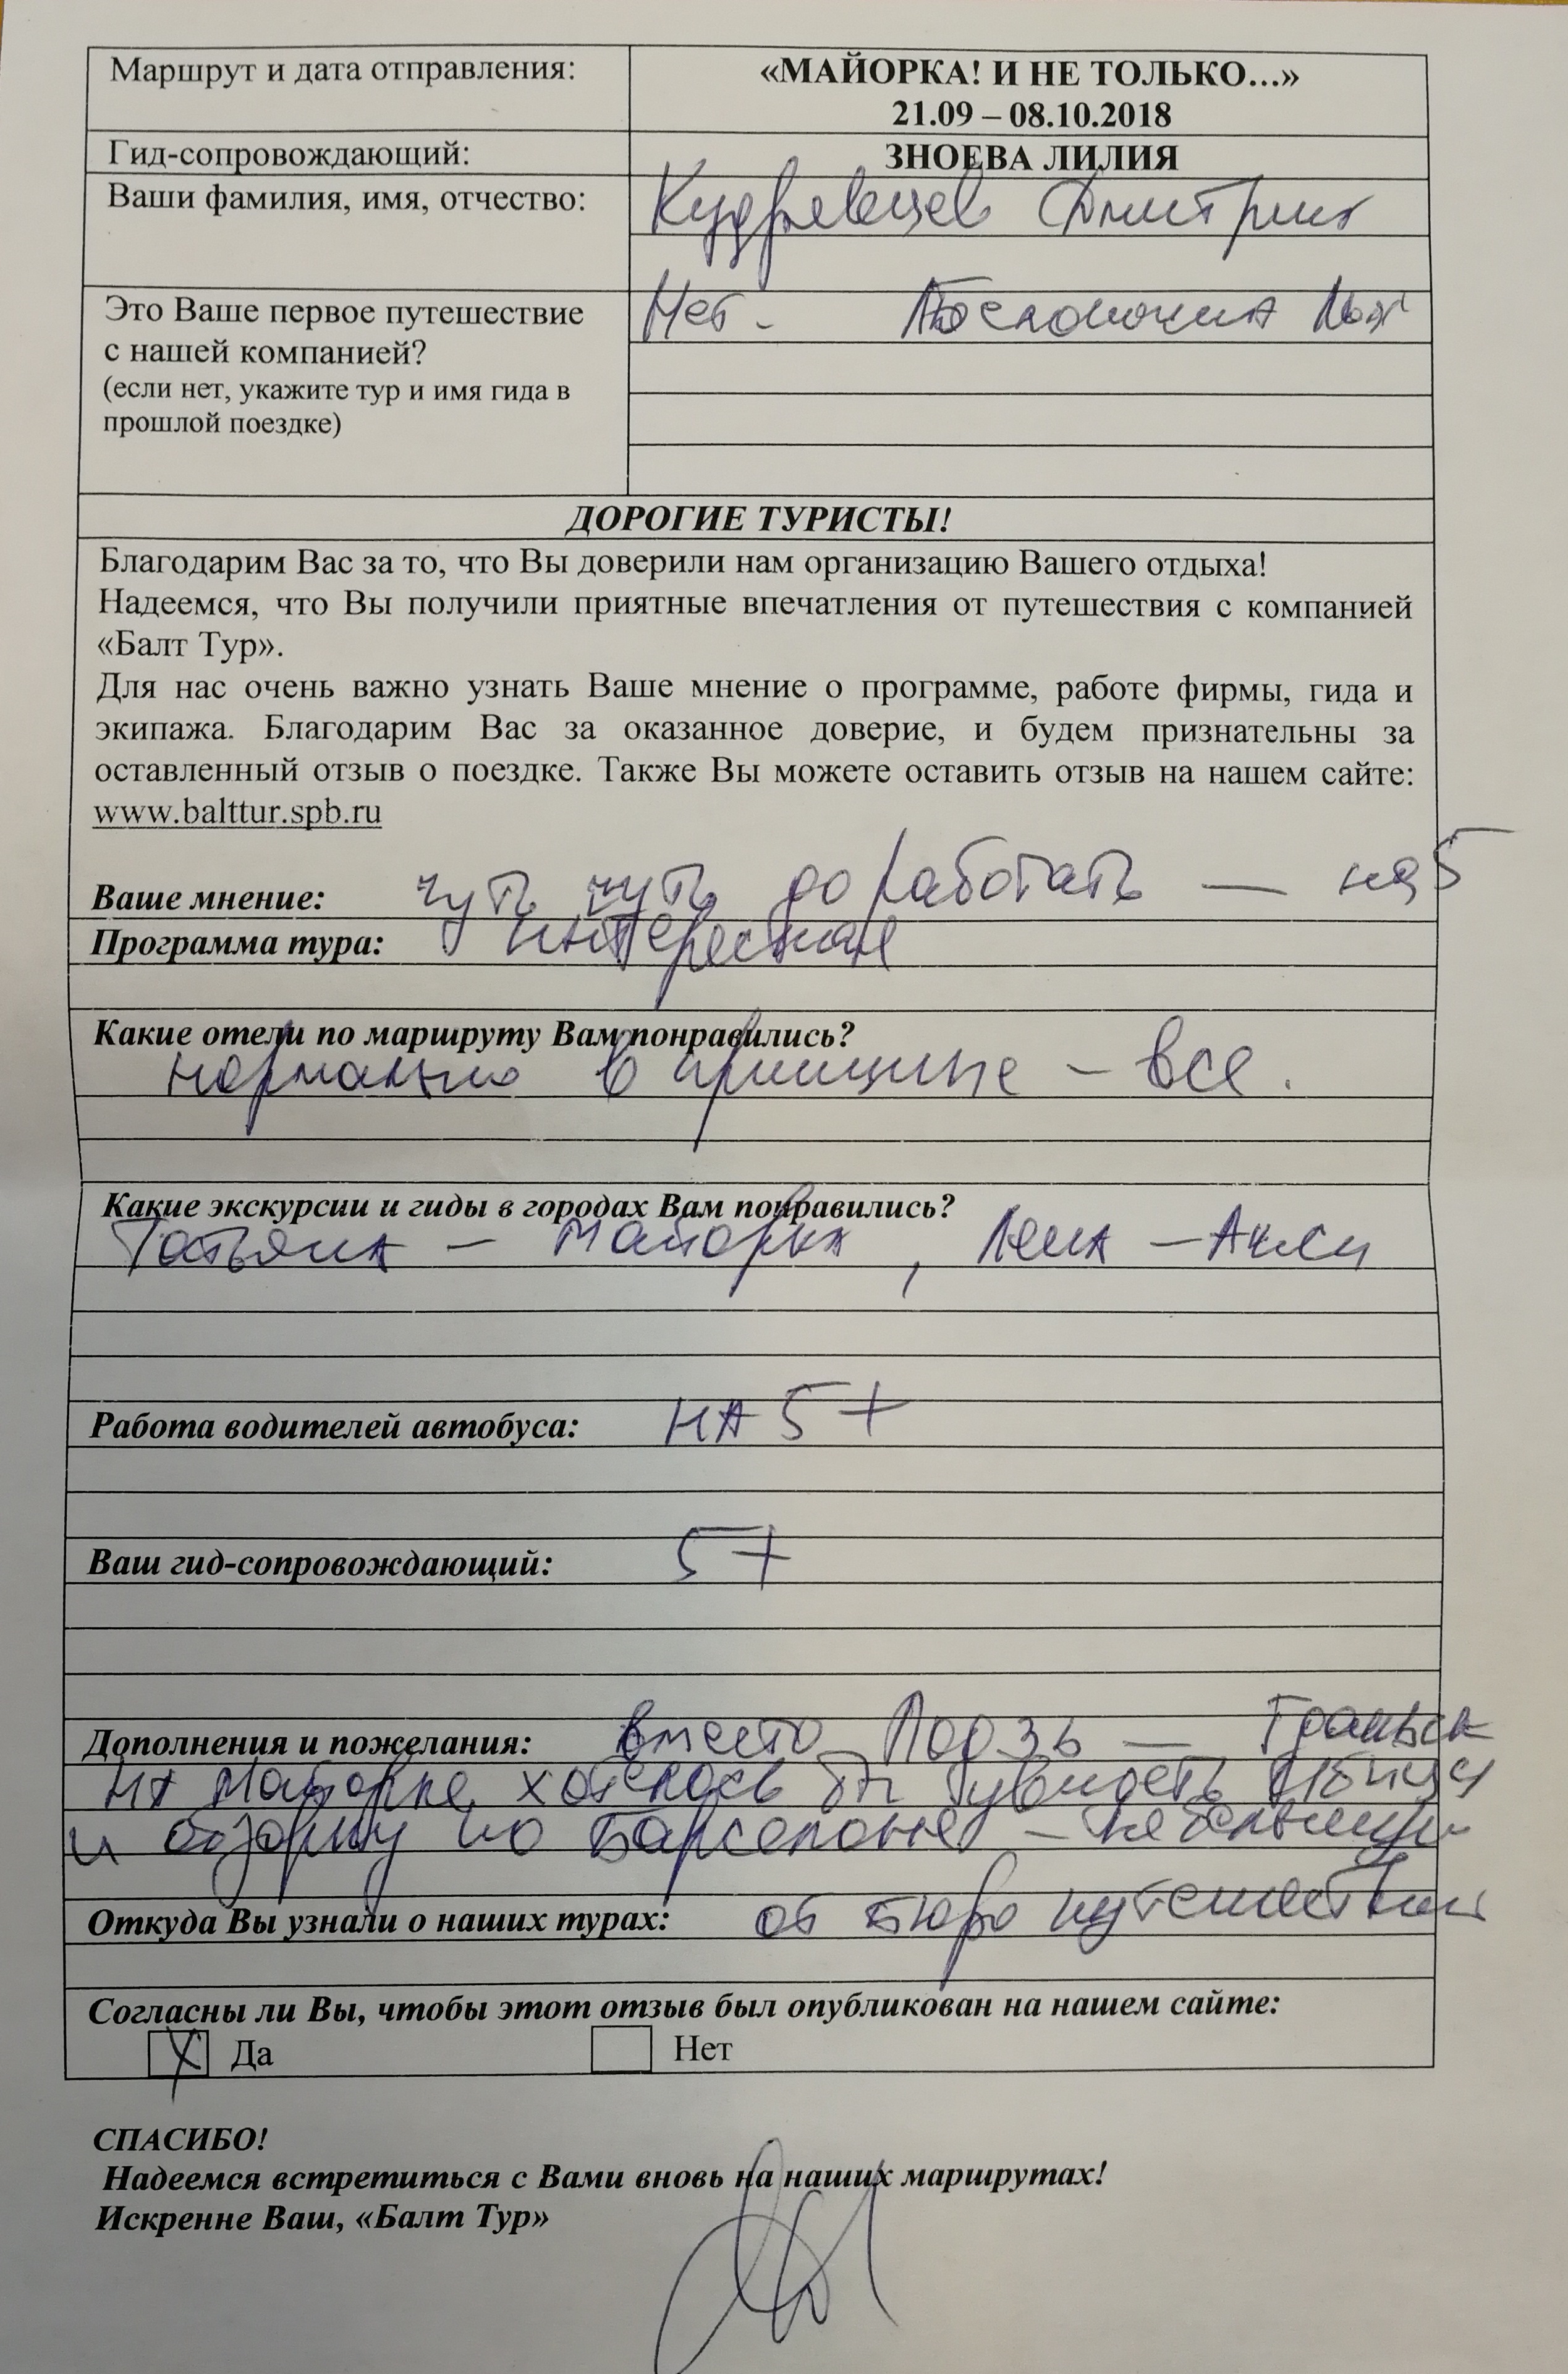 Маршрут и дата отправления:
«МАЙОРКА! И НЕ ТОЛЬКО…»
21.09 – 08.10.2018
Гид-сопровождающий:
ЗНОЕВА ЛИЛИЯ
Ваши фамилия, имя, отчество:
Кудрявцев Дмитрий
Это Ваше первое путешествие
с нашей компанией?
(если нет, укажите тур и имя гида в
прошлой поездке)
Нет -
ДОРОГИЕ ТУРИСТЫ!
Благодарим Вас за то, что Вы доверили нам организацию Вашего отдыха!
Надеемся, что Вы получили приятные впечатления от путешествия с компанией
«Балт Тур».
Для нас очень важно узнать Ваше мнение о программе, работе фирмы, гида и
экипажа. Благодарим Вас за оказанное доверие, и будем признательны за
оставленный отзыв о поездке. Также Вы можете оставить отзыв на нашем сайте:
www.balttur.spb.ru
Ваше мнение: чуть чуть доработать — на 5
Программа тура: интересная
Какие отели по маршруту Вам понравились?
нормально в принципе – все.
Какие экскурсии и гиды в городах Вам понравились?
Татьяна – Майорка, Лена –
Работа водителей автобуса: НА 5+
Ваш гид-сопровождающий: 5+
Дополнения и пожелания: вместо Лодзь —
на Майорке хотелось бы увидеть
и обзорную по Барселоне – небольшую
Откуда Вы узнали о наших турах: от бюро путешествий
Согласны ли Вы, чтобы этот отзыв был опубликован на нашем сайте:
X Да Нет
СПАСИБО!
Надеемся встретиться с Вами вновь на наших маршрутах!
Искренне Ваш, «Балт Тур»